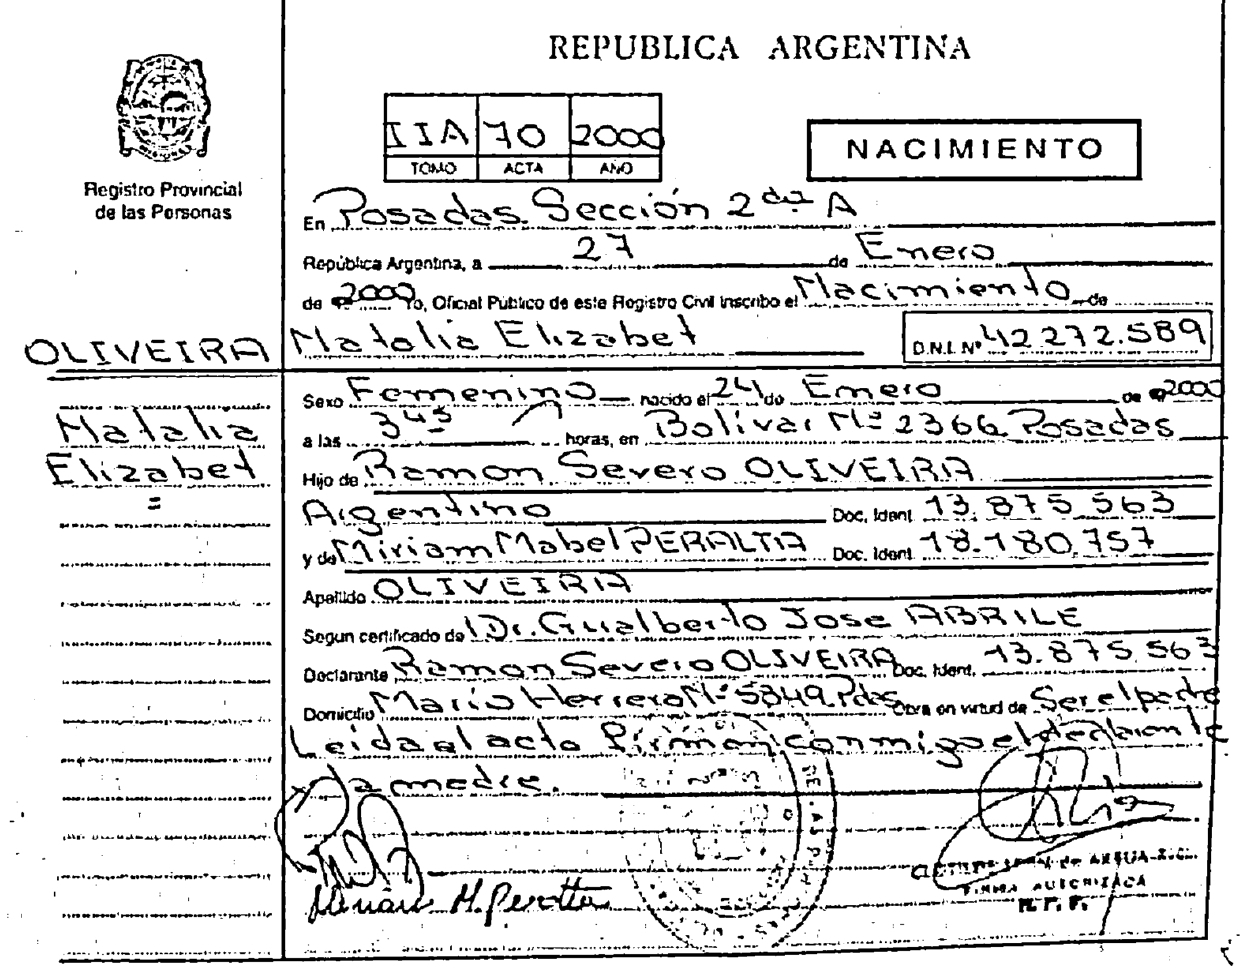 REPUBLICA ARGENTINA
IIA 70 2000
TOMO ACTA AÑO
NACIMIENTO
Registro Provincial
de las Personas
En Posadas Sección 2da A
República Argentina, a 27 de Enero
de 2000 Yo, Oficial Público de este Registro Civil inscribo el Nacimiento de
OLIVEIRA Natalia Elizabet D.N.I. Nº 42 272.589
Sexo Femenino nacido el 24 de Enero de 2000
Natalia
Elizabet
a las 3 45 horas, en Bolivar Nº 2366 Posadas
Hijo de Ramon Severo OLIVEIRA
Argentino Doc. Ident. 13.875.563
y de Miriam Mabel PERALTA Doc. Ident. 18.180.757
Apellido OLIVEIRA
Segun certificado de Dr. Gualberto Jose ABRILE
Declarante Ramon Severo OLIVEIRA Doc. Ident. 13.875.563
Domicilio Mario Herrera Nº 5849 Pdas Obra en virtud de Ser el padre
Leida el acta firman conmigo el declarante
y la madre.
FIRMA AUTORIZADA